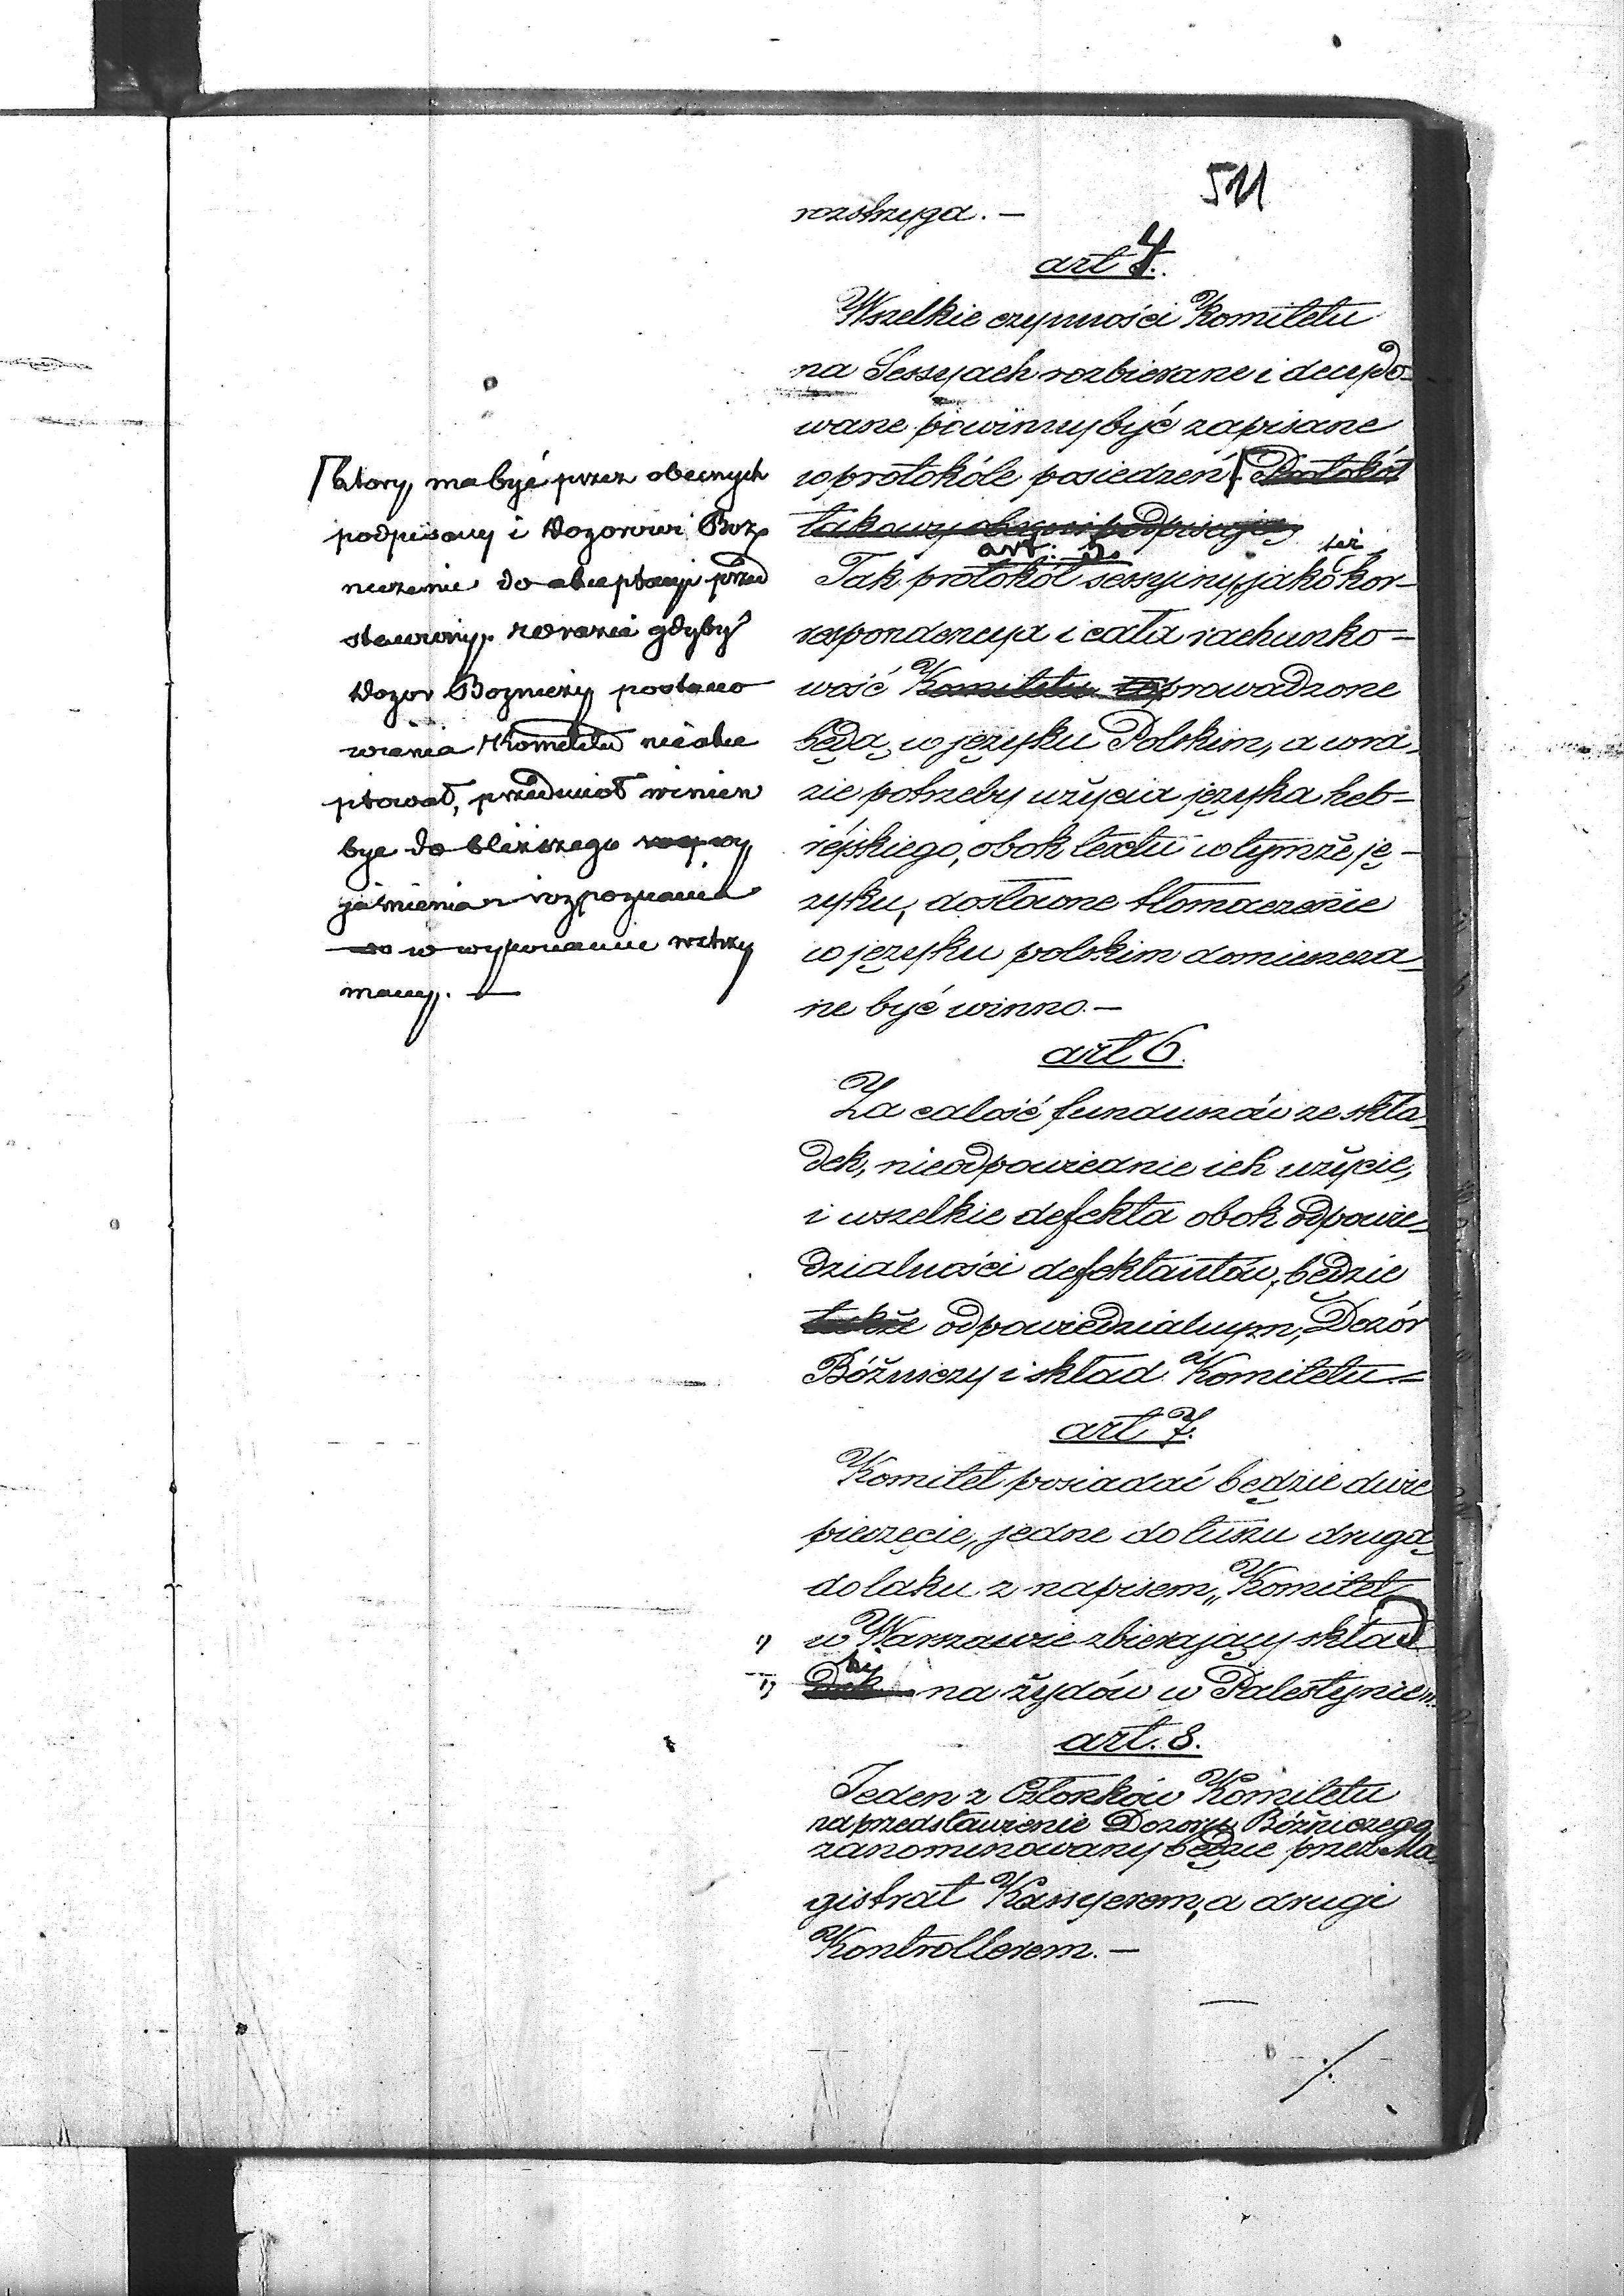 511
rozstrzyga. —
art 4.
Wszelkie czynności Komitetu
na Sessyach rozbierane i decydo-
wane powinny być zapisane
w protokóle posiedzeń. Protokół
takowy obecni podpisują
art: 5.
też
Tak protokół sessyiny, jako kor-
respondencya i cała rachunko=
wość Komitetu prowadzone
będą, w języku Polskim, a w ra-
zie potrzeby użycia języka heb=
rejskiego, obok textu w tymże ję-
zyku, dosłowne tłomaczenie
w języku polskim domieszcza-
ne być winno. —
art 6.
Za całość funduszów ze skła-
dek, nieodpowiednie ich użycie,
i wszelkie defekta obok odpowie-
dzialności defektantów, będzie
także odpowiedzialnym, Dozór
Bóżniczy i skład Komitetu =
art 7.
Komitet posiadać będzie dwie
pieczęcie, jedne do tuszu druga
do laku z napisem „Komitet
w Warszawie zbierający skład
ki
dek na żydów w Palestynie".
art. 8.
Jeden z Członków Komitetu
na przedstawienie Dozoru Bóżniczego
zanominowany będzie przez Ma-
gistrat Kassyerem, a drugi
Kontrollerem. —
./.
który, ma być przez obecnych
podpisany i Dozorowi Boż
niczemu do akceptacyi przed
stawiony. W razie gdyby
Dozor Bozniczy postano
wienia Komitetu nieakce
ptował, przedmiot winien
być do bliższego wy
jaśnienia i rozpoznania
w wykonaniu wstrzy
many. —